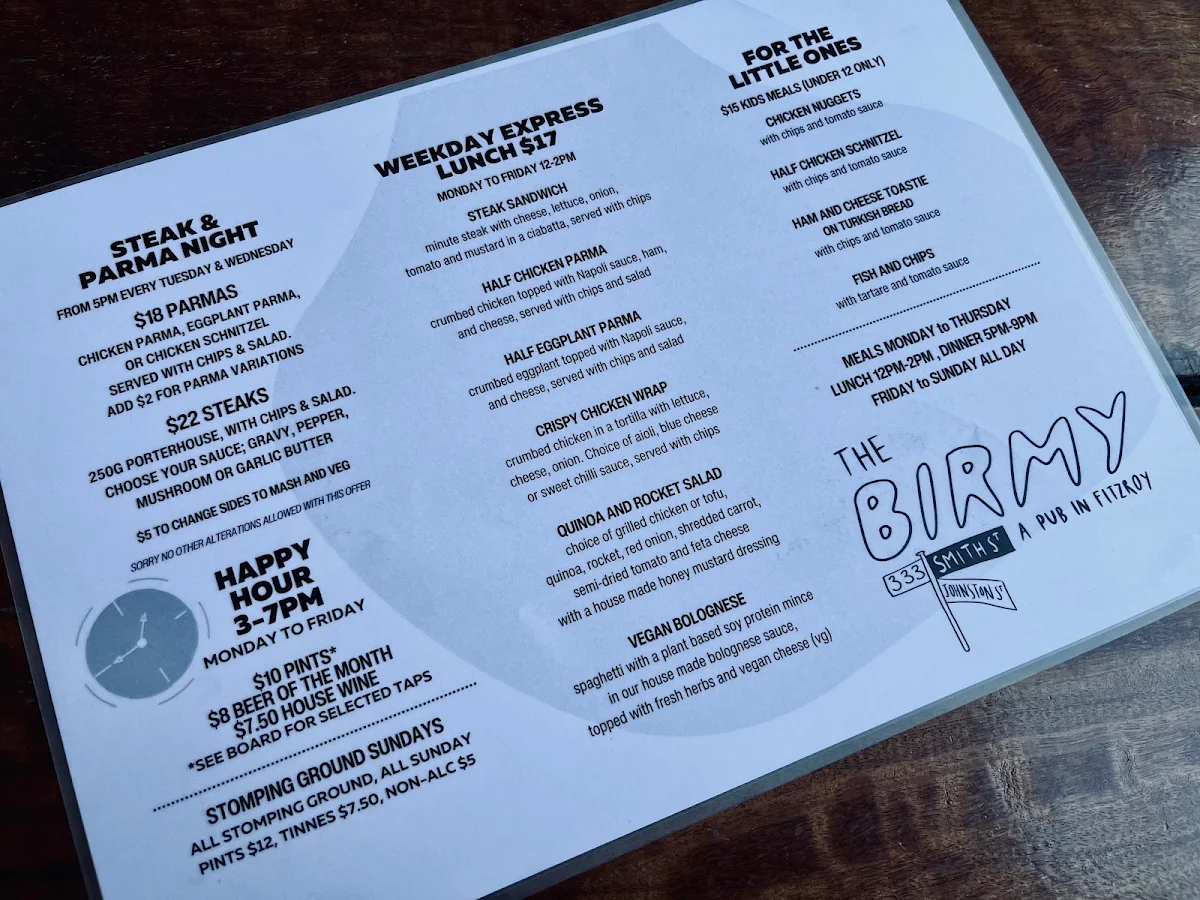 STEAK &
PARMA NIGHT
FROM 5PM EVERY TUESDAY & WEDNESDAY
$18 PARMAS
CHICKEN PARMA, EGGPLANT PARMA,
OR CHICKEN SCHNITZEL
SERVED WITH CHIPS & SALAD.
ADD $2 FOR PARMA VARIATIONS
$22 STEAKS
250G PORTERHOUSE, WITH CHIPS & SALAD.
CHOOSE YOUR SAUCE; GRAVY, PEPPER,
MUSHROOM OR GARLIC BUTTER
$5 TO CHANGE SIDES TO MASH AND VEG
SORRY NO OTHER ALTERATIONS ALLOWED WITH THIS OFFER
HAPPY
HOUR
3-7PM
MONDAY TO FRIDAY
$10 PINTS*
$8 BEER OF THE MONTH
$7.50 HOUSE WINE
*SEE BOARD FOR SELECTED TAPS
STOMPING GROUND SUNDAYS
ALL STOMPING GROUND, ALL SUNDAY
PINTS $12, TINNES $7.50, NON-ALC $5
WEEKDAY EXPRESS
LUNCH $17
MONDAY TO FRIDAY 12-2PM
STEAK SANDWICH
minute steak with cheese, lettuce, onion,
tomato and mustard in a ciabatta, served with chips
HALF CHICKEN PARMA
crumbed chicken topped with Napoli sauce, ham,
and cheese, served with chips and salad
HALF EGGPLANT PARMA
crumbed eggplant topped with Napoli sauce,
and cheese, served with chips and salad
CRISPY CHICKEN WRAP
crumbed chicken in a tortilla with lettuce,
cheese, onion. Choice of aioli, blue cheese
or sweet chilli sauce, served with chips
QUINOA AND ROCKET SALAD
choice of grilled chicken or tofu,
quinoa, rocket, red onion, shredded carrot,
semi-dried tomato and feta cheese
with a house made honey mustard dressing
VEGAN BOLOGNESE
spaghetti with a plant based soy protein mince
in our house made bolognese sauce,
topped with fresh herbs and vegan cheese (vg)
FOR THE
LITTLE ONES
$15 KIDS MEALS (UNDER 12 ONLY)
CHICKEN NUGGETS
with chips and tomato sauce
HALF CHICKEN SCHNITZEL
with chips and tomato sauce
HAM AND CHEESE TOASTIE
ON TURKISH BREAD
with chips and tomato sauce
FISH AND CHIPS
with tartare and tomato sauce
MEALS MONDAY to THURSDAY
LUNCH 12PM-2PM , DINNER 5PM-9PM
FRIDAY to SUNDAY ALL DAY
THE
BIRMY
A PUB IN FITZROY
333 SMITH ST
JOHNSTON ST